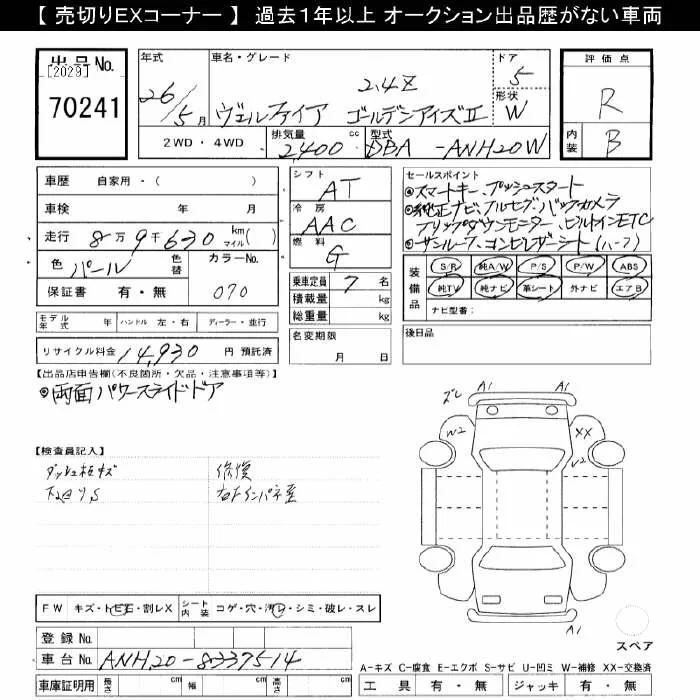 【 売切りEXコーナー 】 過去1年以上 オークション出品歴がない車両
出品No.
[2029]
70241
年式
26/5月
車名・グレード
2.4Z
ヴェルファイア ゴールデンアイズⅡ
ドア
5
形状
W
評価点
R
内装
B
2WD ・ 4WD
排気量
2,400
cc
型式
DBA -ANH20W
車歴
自家用・( )
車検
年 月
走行
8万9千630
km
マイル
( )
色
パール
色替
カラーNo.
070
保証書
有・無
シフト
AT
冷房
AAC
燃料
G
乗車定員
7 名
積載量
kg
総重量
kg
名変期限
月 日
セールスポイント
◎スマートキー、プッシュスタート
◎純正ナビ、フルセグ、バックカメラ
フリップダウンモニター、ビルトインETC
◎サンルーフ、コンビレザーシート(ハーフ)
装備品
S/R 純A/W P/S P/W ABS
純TV 純ナビ 革シート 外ナビ エアB
ナビ型番:
後日品
モデル年式
年
ハンドル
左・右
ディーラー・並行
リサイクル料金
14,930
円 預託済
【出品店申告欄(不良箇所・欠品・注意事項等)】
◎両面パワースライドドア
【検査員記入】
ダッシュ板キズ
修復
右Fインパネ歪
ズレ A1 A1
W2 XX
V2
A1
FW
キズ・トビ石・割レX
シート内装
コゲ・穴・汚レ・シミ・破レ・スレ
登録No.
車台No.
ANH20-8337514
車庫証明用
長さ
cm
幅
cm
高さ
cm
スペア
A-キズ C-腐食 E-エクボ S-サビ U-凹ミ W-補修 XX-交換済
工具
有・無
ジャッキ
有・無